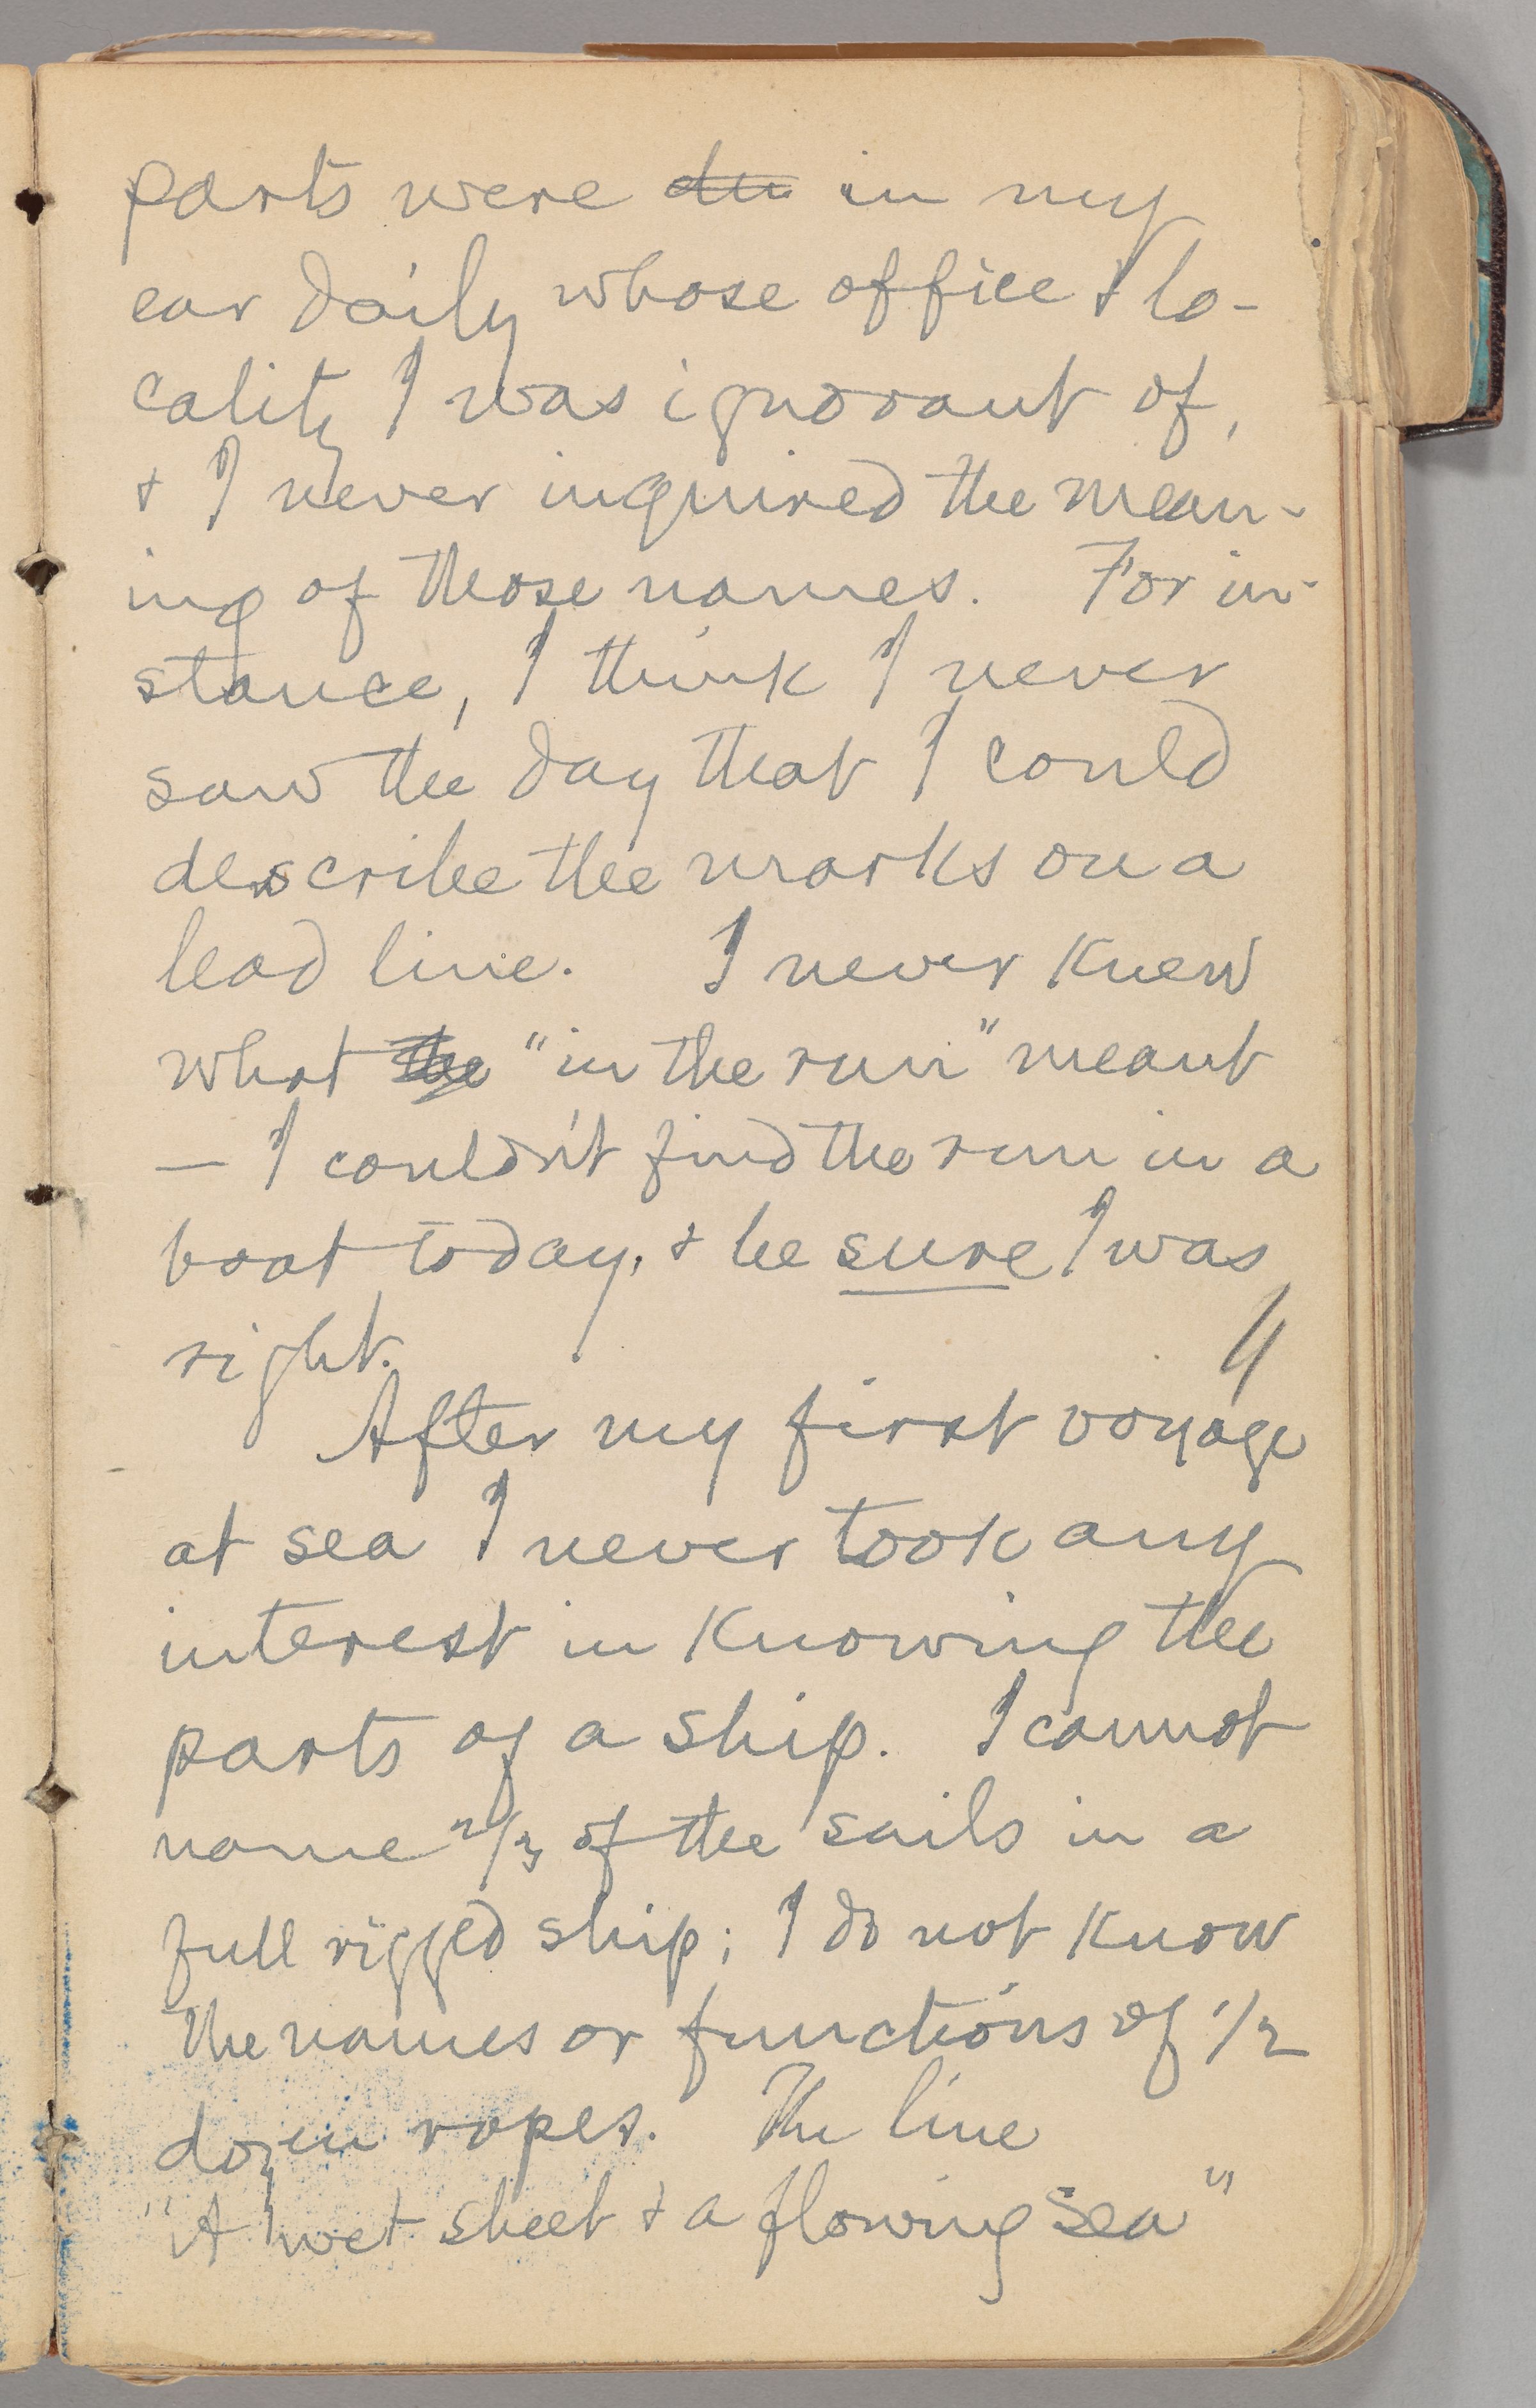 parts were du in my
ear daily whose office & lo-
cality I was ignorant of,
& I never inquired the mean-
ing of those names. For in-
stance, I think I never
saw the day that I could
describe the marks on a
lead line. I never knew
what the "in the run" meant
— I couldn't find the run in a
boat today, & be sure I was
right.
After my first voyage
at sea I never took any
interest in knowing the
parts of a ship. I cannot
name 2/3 of the sails in a
full rigged ship; I do not know
the names or functions of 1/2
dozen ropes. The line
"A wet sheet & a flowing sea"